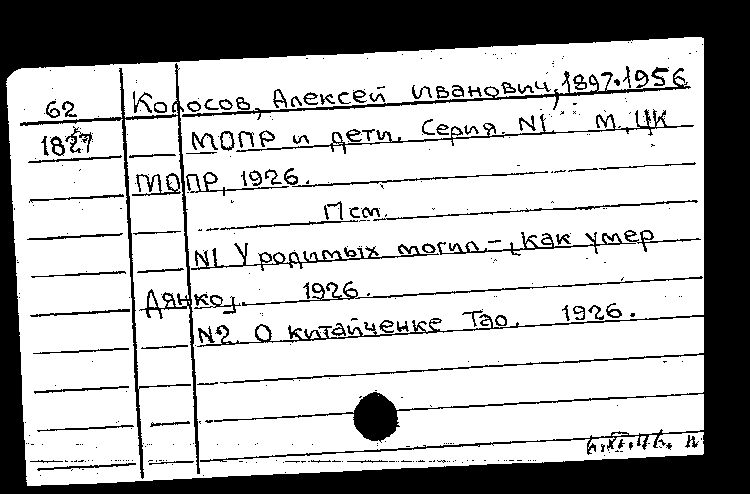 62 Колосов, Алексей Иванович, 1897-1956
1827 МОПР и дети. Серия N1 М., ЦК
МОПР, 1926.
N1 У родимых могил. – Как умер
Дянко. 1926.
N2 О китайченке Тао. 1926.